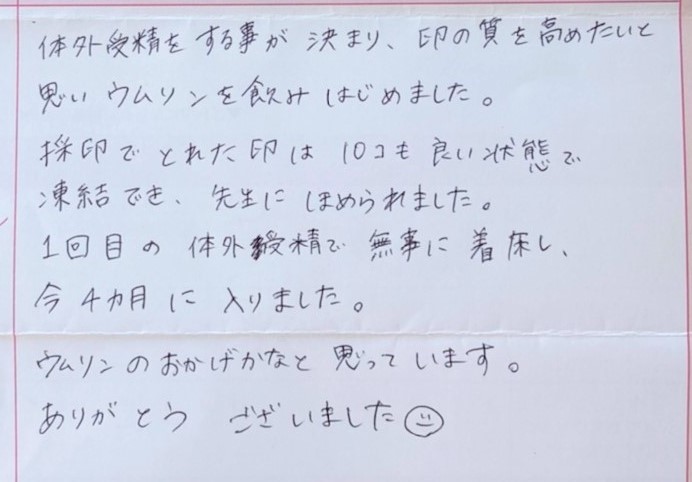 体外受精をする事が決まり、卵の質を高めたいと
思いウムリンを飲みはじめました。
採卵でとれた卵は10コも良い状態で
凍結でき、先生にほめられました。
1回目の体外受精で無事に着床し、
今4カ月に入りました。
ウムリンのおかげかなと思っています。
ありがとうございました